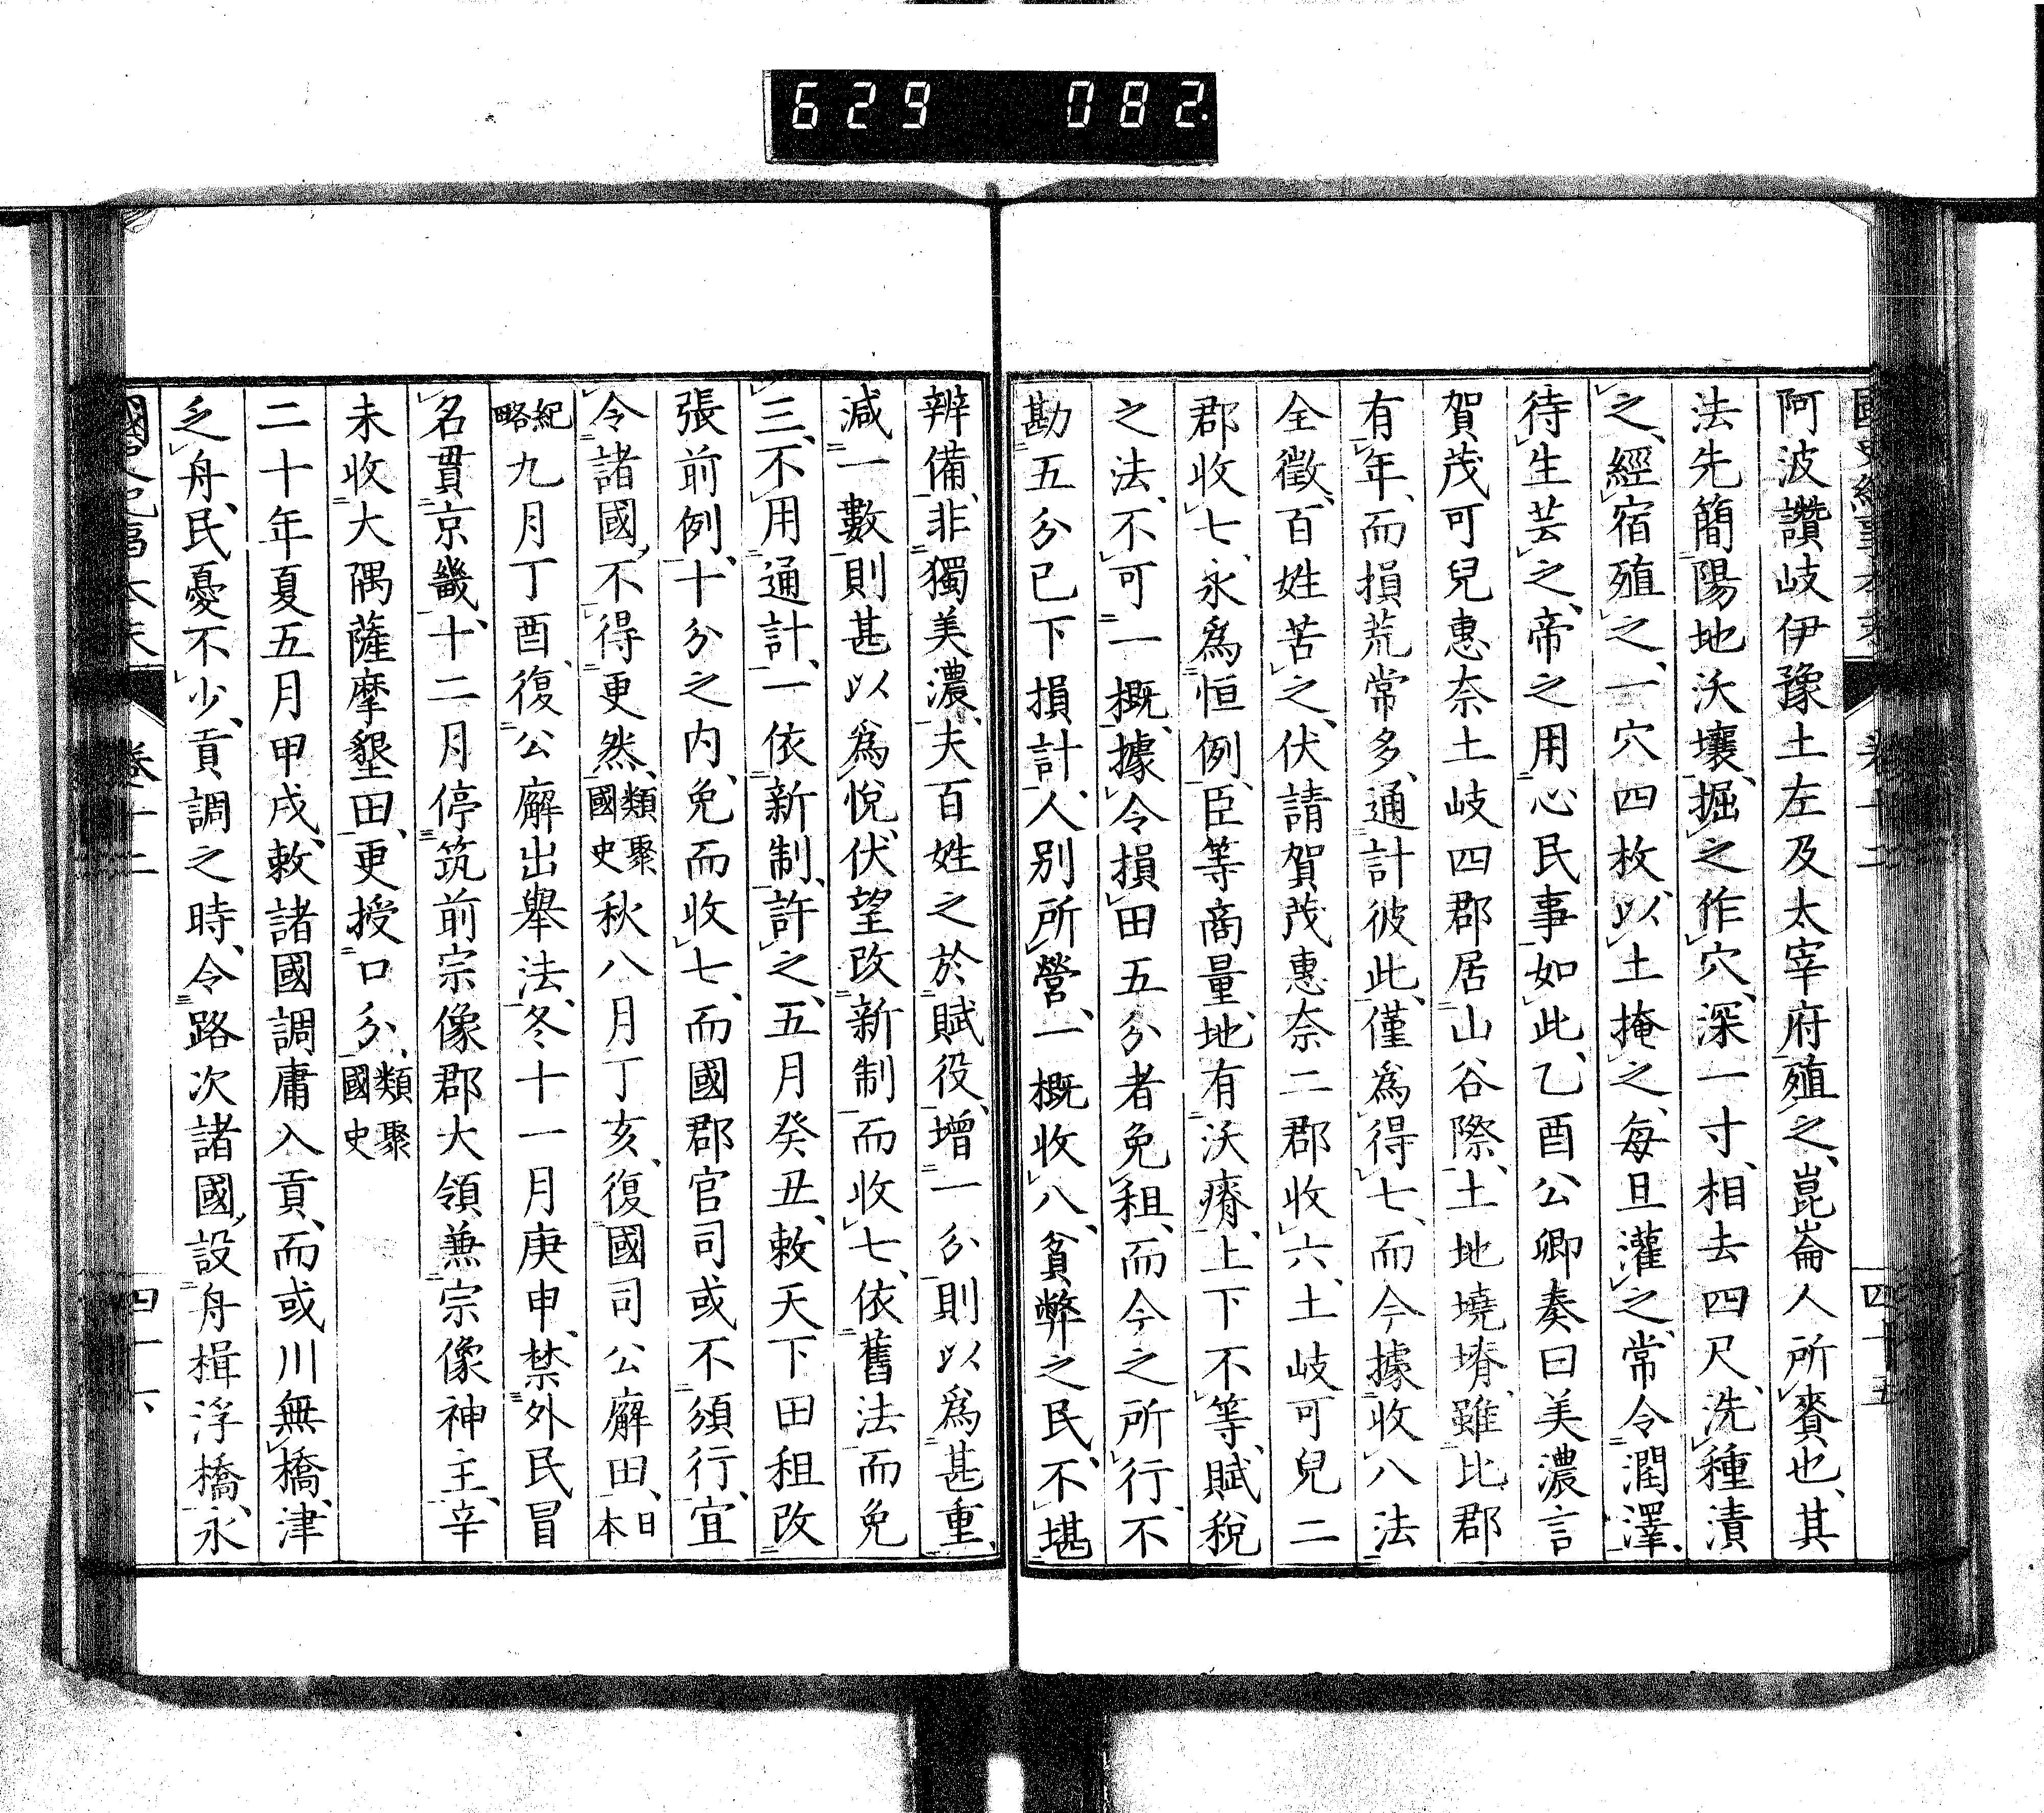 629 082.
阿波讚岐伊豫土左及太宰府殖之、崑崙人所賫也、其
法先簡陽地沃壤、掘之作穴、深一寸、相去四尺、洗種漬
之、經宿殖之、一穴四枚、以土掩之、每旦灌之、常令潤澤、
待生芸之、帝之用心民事如此、乙酉公卿奏曰美濃言
賀茂可兒惠奈土岐四郡居山谷際、土地墝塉、雖比郡
有年、而損荒常多、通計彼此、僅爲得七、而今據收八法
全徵、百姓苦之、伏請賀茂惠奈二郡收六、土岐可兒二
郡收七、永爲恒例、臣等商量、地有沃瘠、上下不等、賦稅
之法、不可一概、據令損田五分者免租、而今之所行、不
勘五分已下損計、人別所營、一概收八、貧弊之民、不堪
辨備、非獨美濃、夫百姓之於賦役、增一分則以爲甚重、
減一數則甚以爲悅、伏望改新制而收七、依舊法而免
三、不用通計、一依新制、許之、五月癸丑、敕天下田租改
張前例、十分之內、免而收七、而國郡官司或不須行、宜
令諸國、不得更然、類聚國史秋八月丁亥、復國司公廨田、日本
紀略九月丁酉、復公廨出擧法、冬十一月庚申、禁外民冒
名貫京畿、十二月停筑前宗像郡大領兼宗像神主、辛
未收大隅薩摩墾田、更授口分、類聚國史
二十年夏五月甲戌、敕諸國調庸入貢、而或川無橋、津
乏舟、民憂不少、貢調之時、令路次諸國、設舟楫浮橋、永
卷十二